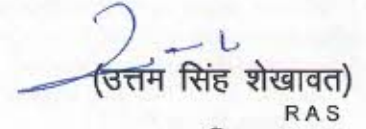 (उत्तम सिंह शेखावत)
RAS